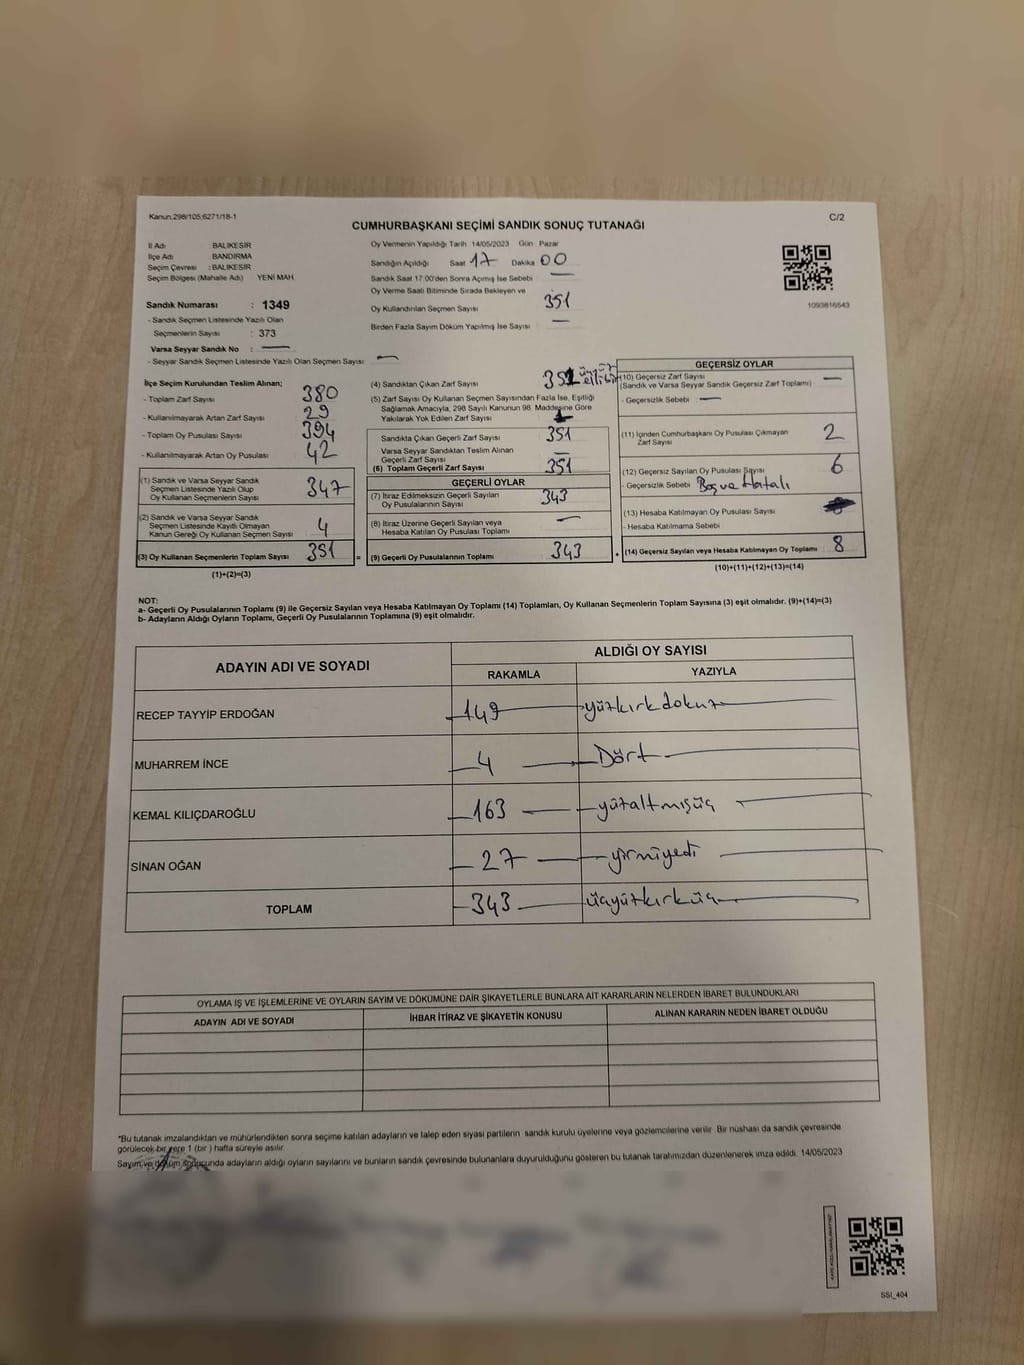 Kanun:298/105;6271/18-1
C/2
CUMHURBAŞKANI SEÇİMİ SANDIK SONUÇ TUTANAĞI
İl Adı BALIKESİR
İlçe Adı BANDIRMA
Seçim Çevresi : BALIKESİR
Seçim Bölgesi (Mahalle Adı) YENİ MAH.
Sandık Numarası : 1349
- Sandık Seçmen Listesinde Yazılı Olan
Seçmenlerin Sayısı : 373
Varsa Seyyar Sandık No : —
- Seyyar Sandık Seçmen Listesinde Yazılı Olan Seçmen Sayısı : —
Oy Vermenin Yapıldığı Tarih 14/05/2023 Gün Pazar
Sandığın Açıldığı Saat 17 Dakika 00
Sandık Saat 17:00'den Sonra Açılmış İse Sebebi —
Oy Verme Saati Bitiminde Sırada Bekleyen ve
Oy Kullandırılan Seçmen Sayısı 351
Birden Fazla Sayım Döküm Yapılmış İse Sayısı —
1093816543
İlçe Seçim Kurulundan Teslim Alınan;
- Toplam Zarf Sayısı 380
- Kullanılmayarak Artan Zarf Sayısı 29
- Toplam Oy Pusulası Sayısı 394
- Kullanılmayarak Artan Oy Pusulası 42
(1) Sandık ve Varsa Seyyar Sandık
Seçmen Listesinde Yazılı Olup
Oy Kullanan Seçmenlerin Sayısı 347
(2) Sandık ve Varsa Seyyar Sandık
Seçmen Listesinde Kayıtlı Olmayan
Kanun Gereği Oy Kullanan Seçmen Sayısı 4
(3) Oy Kullanan Seçmenlerin Toplam Sayısı 351 =
(1)+(2)=(3)
(4) Sandıktan Çıkan Zarf Sayısı 351
(5) Zarf Sayısı Oy Kullanan Seçmen Sayısından Fazla İse, Eşitliği
Sağlamak Amacıyla, 298 Sayılı Kanunun 98. Maddesine Göre
Yakılarak Yok Edilen Zarf Sayısı
Sandıkta Çıkan Geçerli Zarf Sayısı 351
Varsa Seyyar Sandıktan Teslim Alınan
Geçerli Zarf Sayısı —
(6) Toplam Geçerli Zarf Sayısı 351
GEÇERLİ OYLAR
(7) İtiraz Edilmeksizin Geçerli Sayılan
Oy Pusulalarının Sayısı 343
(8) İtiraz Üzerine Geçerli Sayılan veya
Hesaba Katılan Oy Pusulası Toplamı —
(9) Geçerli Oy Pusulalarının Toplamı 343 +
GEÇERSİZ OYLAR
(10) Geçersiz Zarf Sayısı —
(Sandık ve Varsa Seyyar Sandık Geçersiz Zarf Toplamı)
- Geçersizlik Sebebi : —
(11) İçinden Cumhurbaşkanı Oy Pusulası Çıkmayan
Zarf Sayısı 2
(12) Geçersiz Sayılan Oy Pusulası Sayısı 6
- Geçersizlik Sebebi : Boş ve Hatalı
(13) Hesaba Katılmayan Oy Pusulası Sayısı
- Hesaba Katılmama Sebebi :
(14) Geçersiz Sayılan veya Hesaba Katılmayan Oy Toplamı 8
(10)+(11)+(12)+(13)=(14)
NOT:
a- Geçerli Oy Pusulalarının Toplamı (9) ile Geçersiz Sayılan veya Hesaba Katılmayan Oy Toplamı (14) Toplamları, Oy Kullanan Seçmenlerin Toplam Sayısına (3) eşit olmalıdır. (9)+(14)=(3)
b- Adayların Aldığı Oyların Toplamı, Geçerli Oy Pusulalarının Toplamına (9) eşit olmalıdır.
ADAYIN ADI VE SOYADI ALDIĞI OY SAYISI
RAKAMLA YAZIYLA
RECEP TAYYİP ERDOĞAN 149 yüzkırkdokuz
MUHARREM İNCE 4 Dört
KEMAL KILIÇDAROĞLU 163 yüzaltmışüç
SİNAN OĞAN 27 yirmiyedi
TOPLAM 343 üçyüzkırküç
OYLAMA İŞ VE İŞLEMLERİNE VE OYLARIN SAYIM VE DÖKÜMÜNE DAİR ŞİKAYETLERLE BUNLARA AİT KARARLARIN NELERDEN İBARET BULUNDUKLARI
ADAYIN ADI VE SOYADI İHBAR İTİRAZ VE ŞİKAYETİN KONUSU ALINAN KARARIN NEDEN İBARET OLDUĞU
*Bu tutanak imzalandıktan ve mühürlendikten sonra seçime katılan adayların ve talep eden siyasi partilerin sandık kurulu üyelerine veya gözlemcilerine verilir. Bir nüshası da sandık çevresinde
görülecek bir yere 1 (bir) hafta süreyle asılır.
Sayım ve döküm sonucunda adayların aldığı oyların sayılarını ve bunların sandık çevresinde bulunanlara duyurulduğunu gösteren bu tutanak tarafımızdan düzenlenerek imza edildi. 14/05/2023
SSI_404